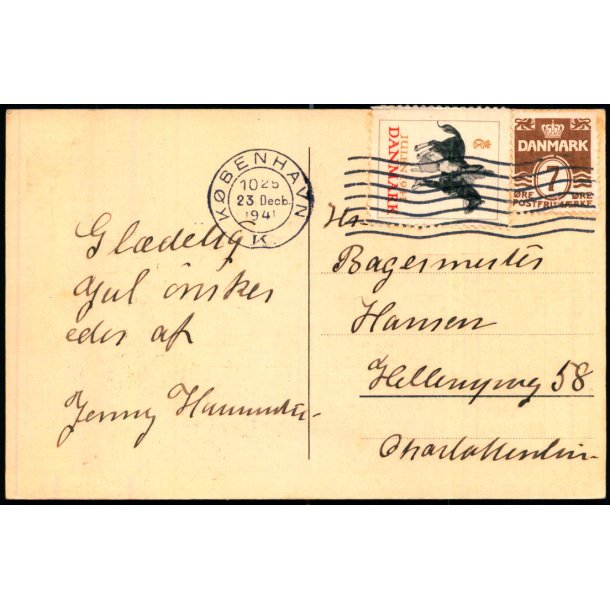 KØBENHAVN
1025
23 Decb.
1941
K.
JULEN
DANMARK
DANMARK
7
ØRE ØRE
POSTFRIMÆRKE
Glædelig
Jul ønskes
eder af
Jenny
Hr.
Bagermester
Hansen
58
Charlottenlun